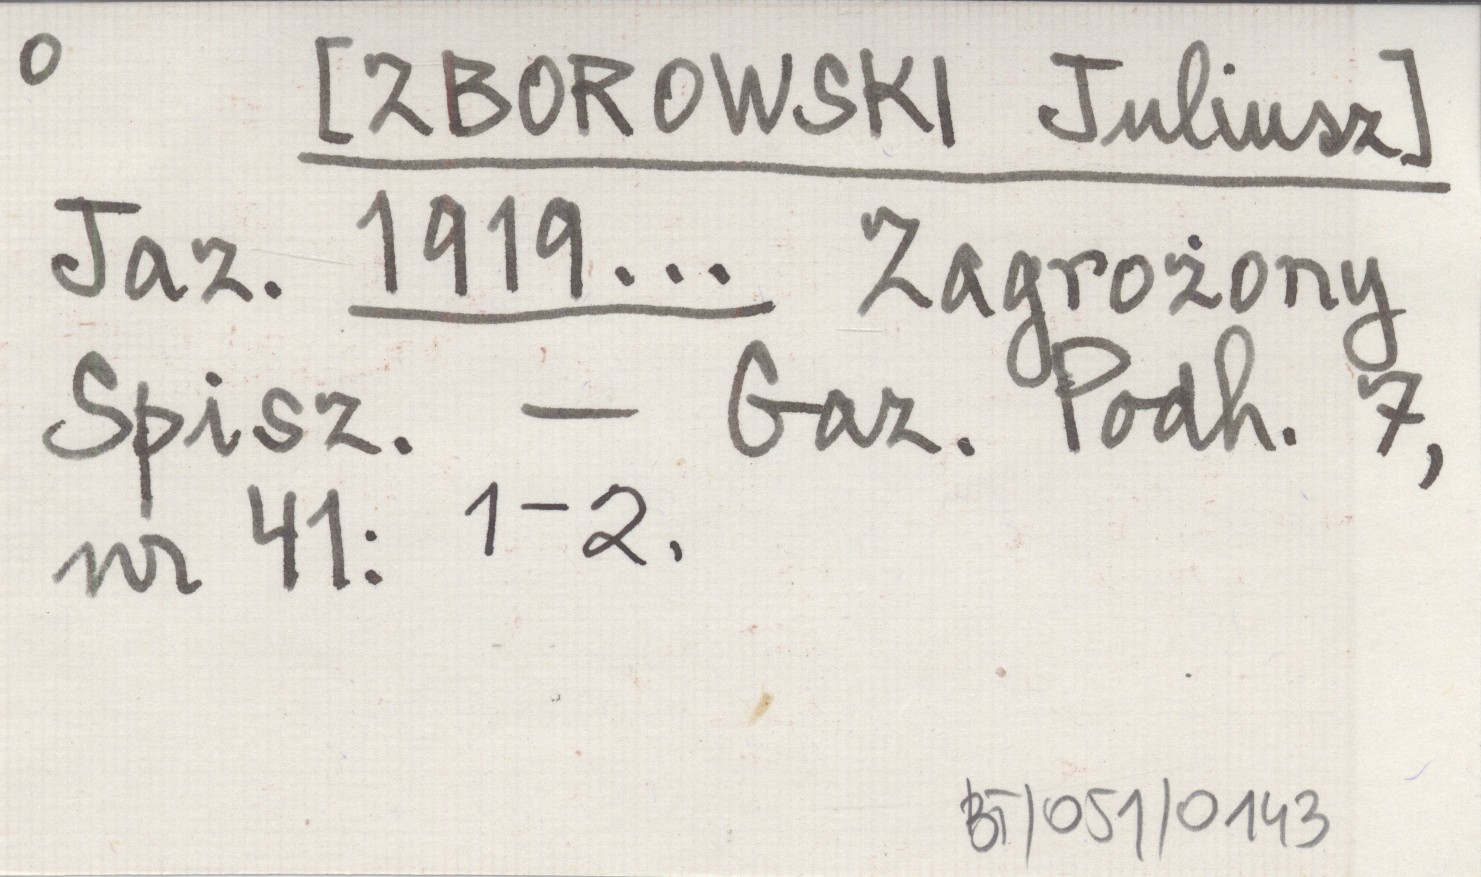 o [ZBOROWSKI Juliusz]
Jaz. 1919... Zagrożony
Spisz. — Gaz. Podh. 7,
nr 41: 1-2.
BT/051/0143